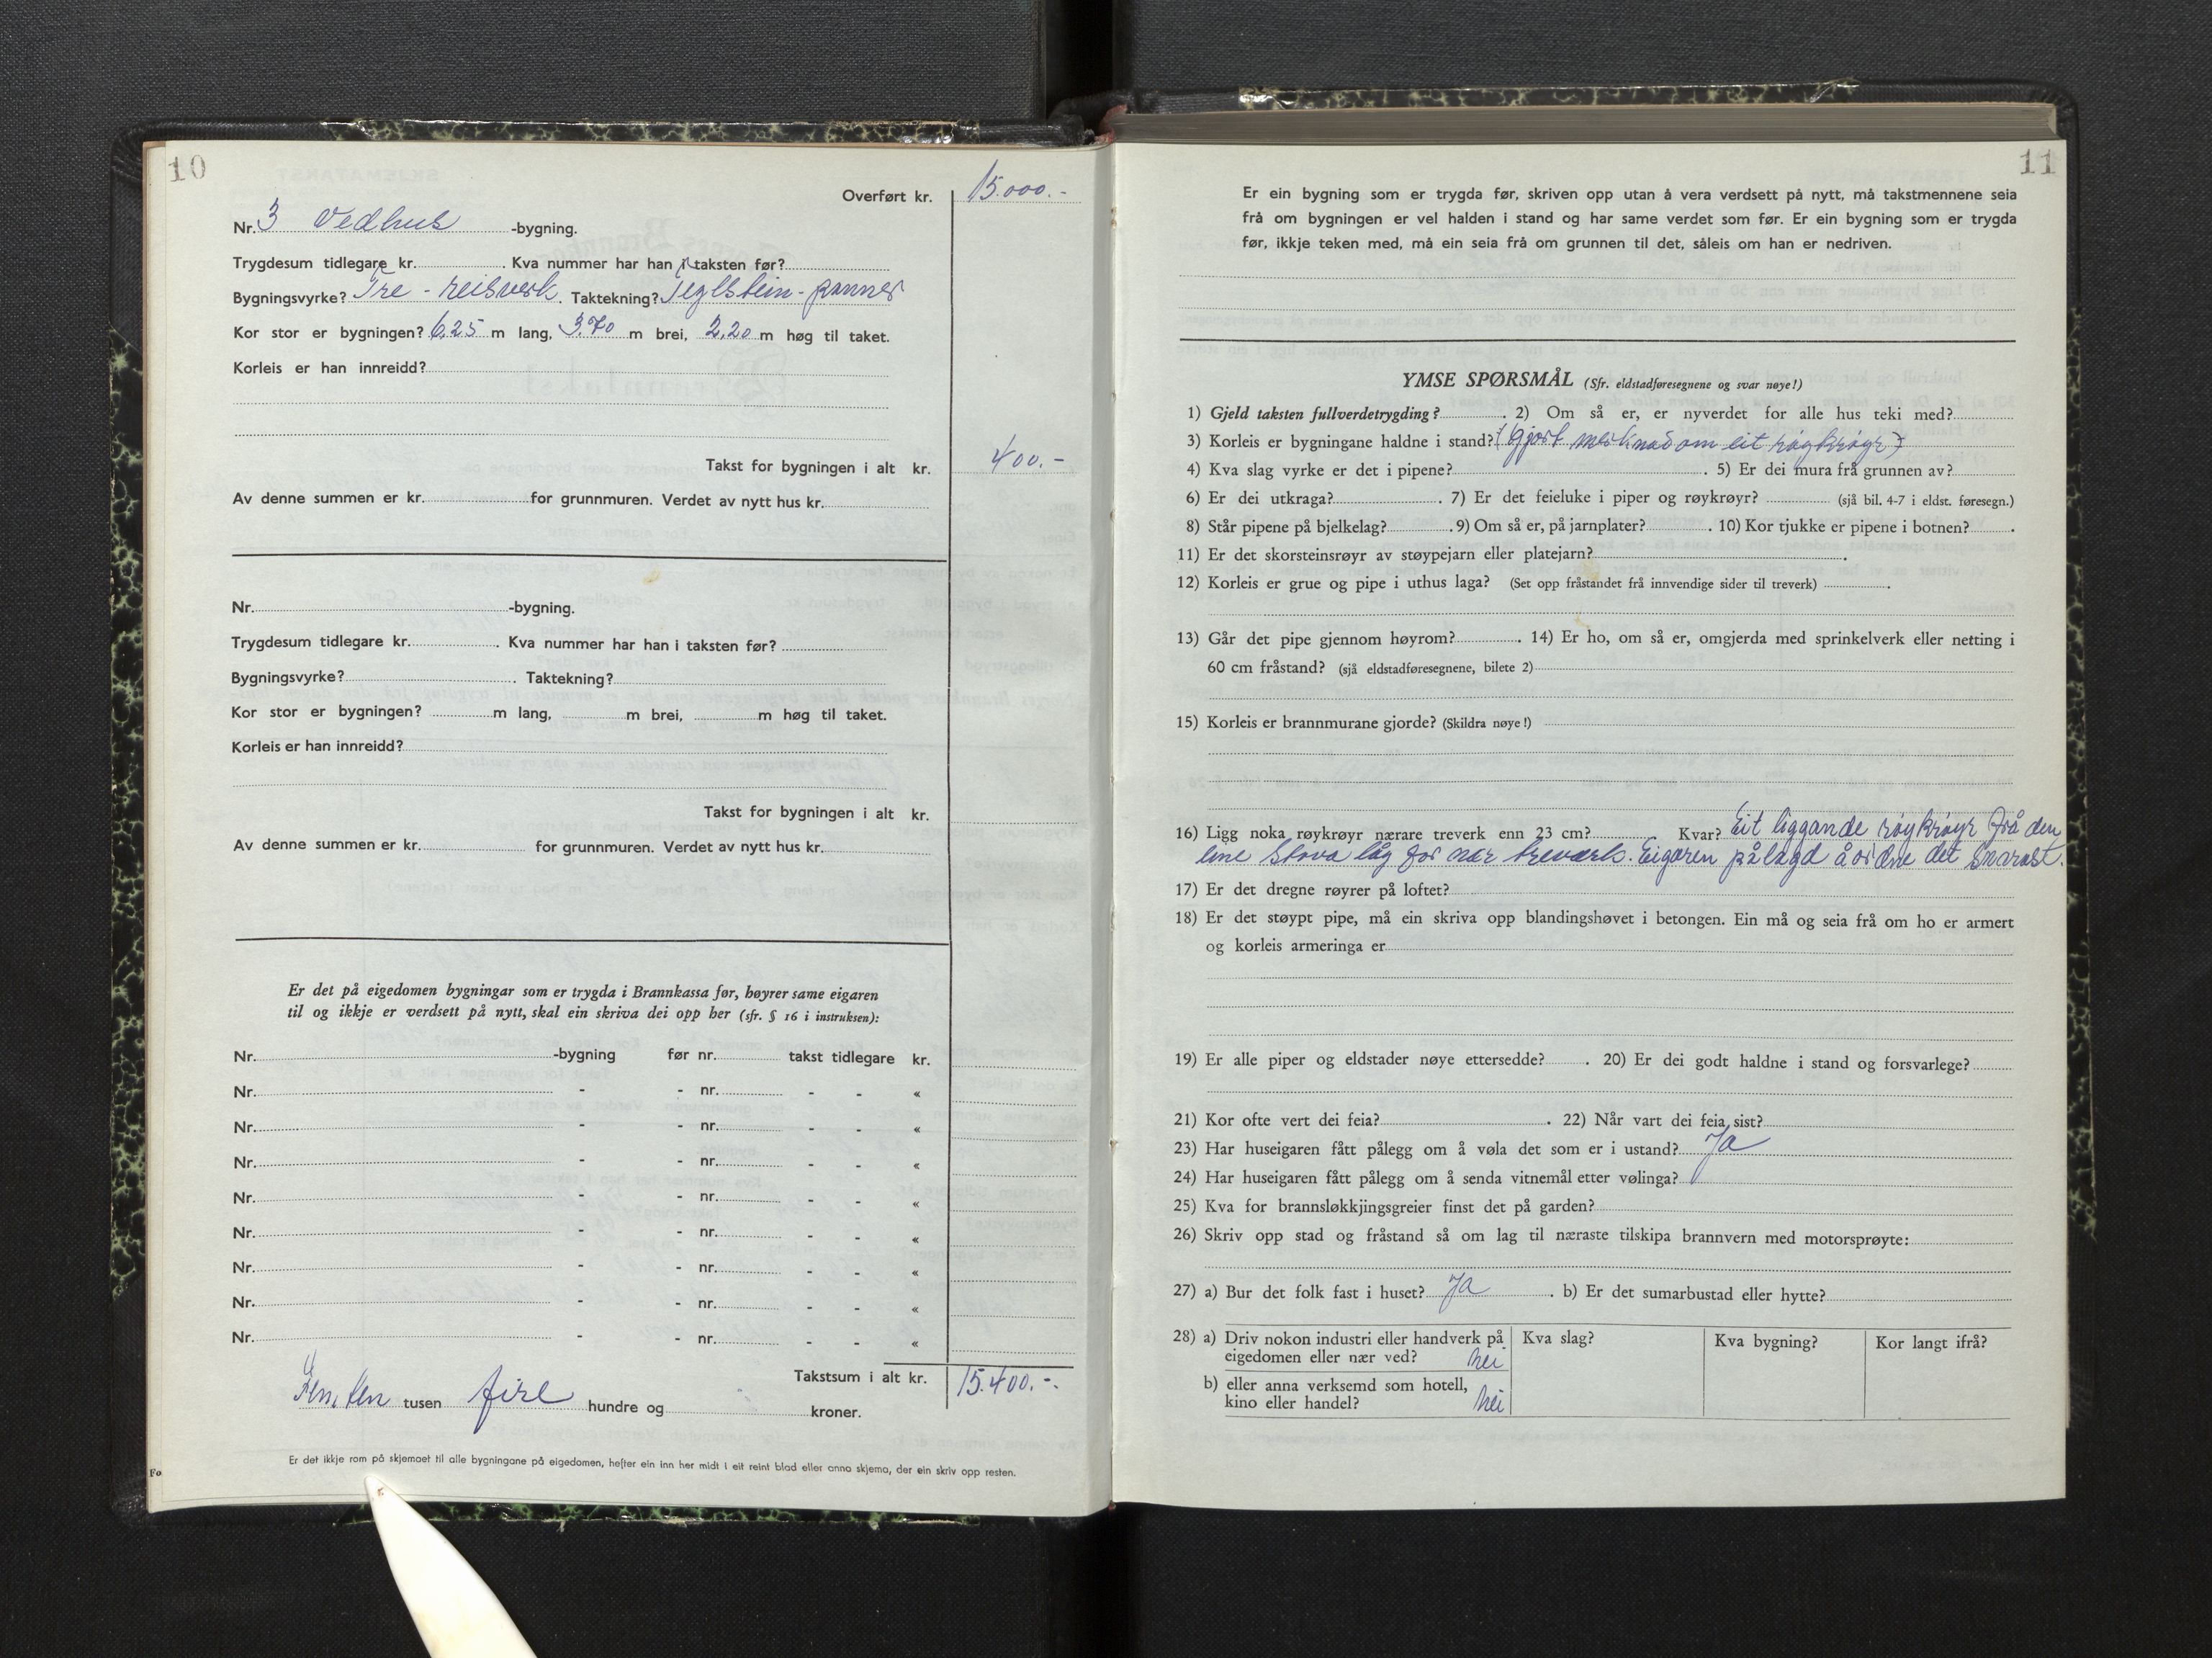 10
Overført kr. 15.000.-
Nr. 3 Vedhus -bygning.
Trygdesum tidlegare kr. Kva nummer har han i taksten før?
Bygningsvyrke? Tre - reisverk. Taktekning? Teglstein-panner
Kor stor er bygningen? 6,25 m lang, 3,70 m brei, 2,20 m høg til taket.
Korleis er han innreidd?
Takst for bygningen i alt kr. 400.-
Av denne summen er kr. for grunnmuren. Verdet av nytt hus kr.
Nr. -bygning.
Trygdesum tidlegare kr. Kva nummer har han i taksten før?
Bygningsvyrke? . Taktekning?
Kor stor er bygningen? m lang, m brei, m høg til taket.
Korleis er han innreidd?
Takst for bygningen i alt kr.
Av denne summen er kr. for grunnmuren. Verdet av nytt hus kr.
Er det på eigedomen bygningar som er trygda i Brannkassa før, høyrer same eigaren
til og ikkje er verdsett på nytt, skal ein skriva dei opp her (sfr. § 16 i instruksen):
Nr. -bygning før nr. takst tidlegare kr.
Nr. - - nr. - - «
Nr. - - nr. - - «
Nr. - - nr. - - «
Nr. - - nr. - - «
Nr. - - nr. - - «
Nr. - - nr. - - «
Nr. - - nr. - - «
Nr. - - nr. - - «
Takstsum i alt kr. 15.400.-
Femten tusen fire hundre og kroner.
Er det ikkje rom på skjemaet til alle bygningane på eigedomen, hefter ein inn her midt i eit reint blad eller anna skjema, der ein skriv opp resten.
Fo
11
Er ein bygning som er trygda før, skriven opp utan å vera verdsett på nytt, må takstmennene seia
frå om bygningen er vel halden i stand og har same verdet som før. Er ein bygning som er trygda
før, ikkje teken med, må ein seia frå om grunnen til det, såleis om han er nedriven.
YMSE SPØRSMÅL (Sfr. eldstadføresegnene og svar nøye!)
1) Gjeld taksten fullverdetrygding? . 2) Om så er, er nyverdet for alle hus teki med?
3) Korleis er bygningane haldne i stand? (Gjort merknad om eit røykrøyr)
4) Kva slag vyrke er det i pipene? . 5) Er dei mura frå grunnen av?
6) Er dei utkraga? . 7) Er det feieluke i piper og røykrøyr? (sjå bil. 4-7 i eldst. føresegn.)
8) Står pipene på bjelkelag? . 9) Om så er, på jarnplater? . 10) Kor tjukke er pipene i botnen? .
11) Er det skorsteinsrøyr av støypejarn eller platejarn? .
12) Korleis er grue og pipe i uthus laga? (Set opp fråstandet frå innvendige sider til treverk) .
13) Går det pipe gjennom høyrom? . 14) Er ho, om så er, omgjerda med sprinkelverk eller netting i
60 cm fråstand? (sjå eldstadføresegnene, bilete 2)
15) Korleis er brannmurane gjorde? (Skildra nøye!)
16) Ligg noka røykrøyr nærare treverk enn 23 cm? . Kvar? Eit liggande røykrøyr frå den
eine stova låg for nær treverk. Eigaren pålagd å ordne det snarast.
17) Er det dregne røyrer på loftet?
18) Er det støypt pipe, må ein skriva opp blandingshøvet i betongen. Ein må og seia frå om ho er armert
og korleis armeringa er
19) Er alle piper og eldstader nøye ettersedde? . 20) Er dei godt haldne i stand og forsvarlege?
21) Kor ofte vert dei feia? . 22) Når vart dei feia sist?
23) Har huseigaren fått pålegg om å vøla det som er i ustand? Ja
24) Har huseigaren fått pålegg om å senda vitnemål etter vølinga?
25) Kva for brannsløkkjingsgreier finst det på garden?
26) Skriv opp stad og fråstand så om lag til næraste tilskipa brannvern med motorsprøyte:
27) a) Bur det folk fast i huset? Ja . b) Er det sumarbustad eller hytte?
28) a) Driv nokon industri eller handverk på Kva slag? Kva bygning? Kor langt ifrå?
eigedomen eller nær ved? nei
b) eller anna verksemd som hotell,
kino eller handel? nei